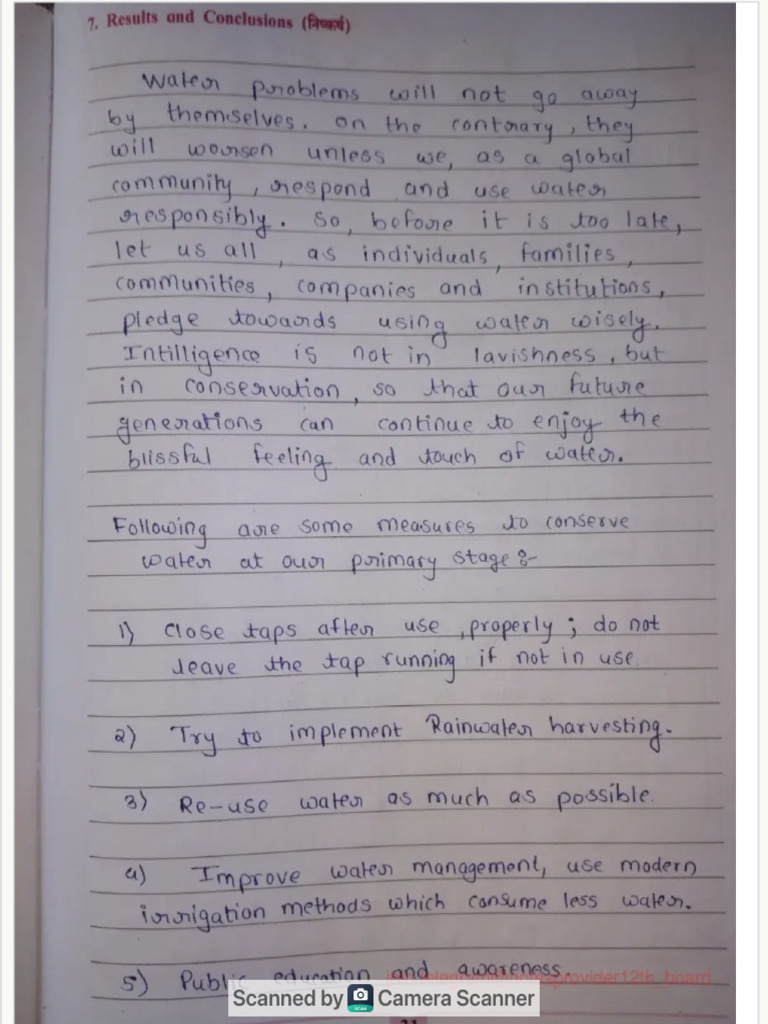 7. Results and Conclusions (निष्कर्ष)
Water problems will not go away
by themselves. on the contrary, they
will worsen unless we, as a global
community, respond and use water
responsibly. So, before it is too late,
let us all, as individuals, families,
communities, companies and institutions,
pledge towards using water wisely.
Intilligence is not in lavishness, but
in conservation, so that our future
generations can continue to enjoy the
blissful feeling and touch of water.
Following are some measures to conserve
water at our primary stage :-
1) Close taps after use, properly; do not
leave the tap running if not in use.
2) Try to implement Rainwater harvesting.
3) Re-use water as much as possible.
4) Improve water management, use modern
irrigation methods which consume less water.
5) Public education and awareness.
Scanned by Camera Scanner